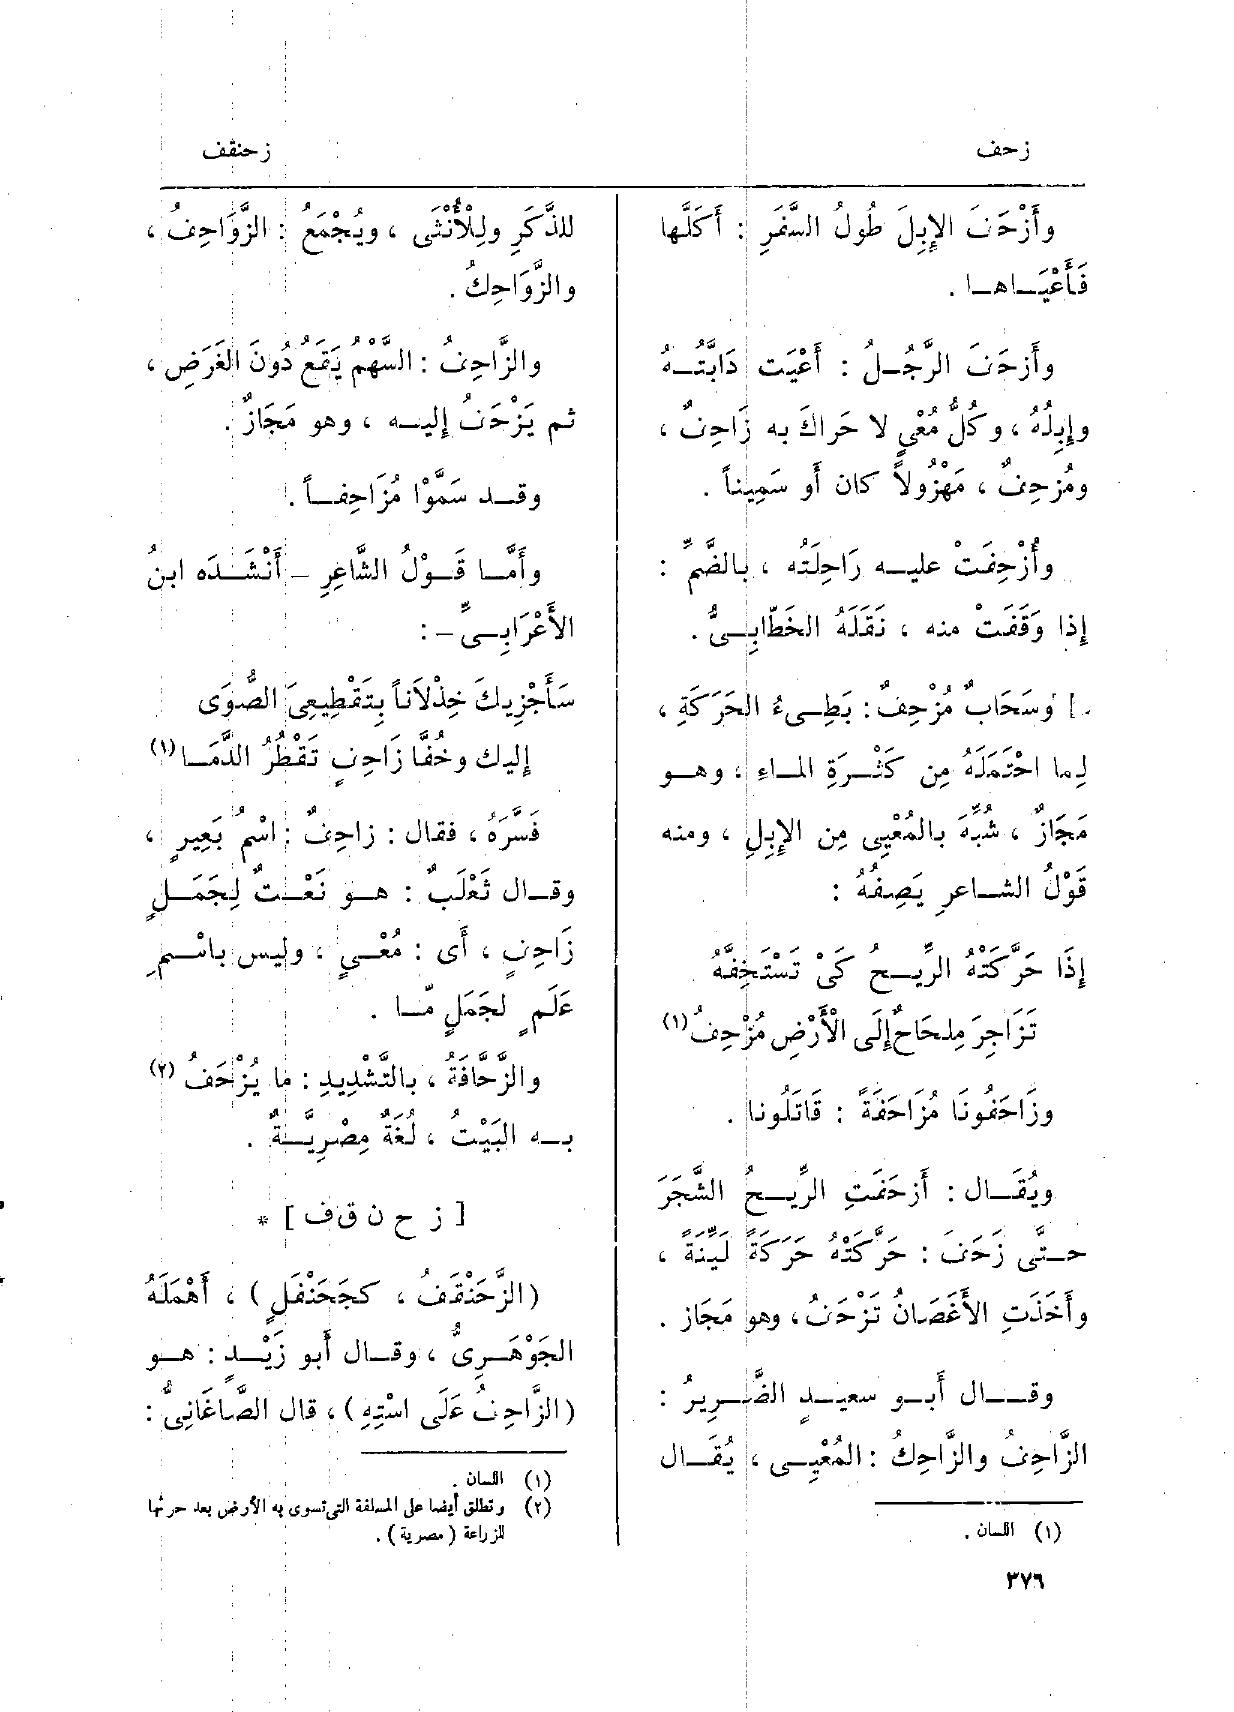 زحف
زحنقف
وأَزْحَفَ الإِبِلَ طُولُ السَّفَرِ : أَكَلَّها
فَأَعْيَاها .
وأَزحَفَ الرَّجُلُ : أَعْيَت دَابَّتُهُ
وإِبِلُهُ ، وكُلُّ مُعْيٍ لا حَراكَ به زَاحِفٌ ،
ومُزحِفٌ ، مَهْزُولاً كان أَو سَمِيناً .
وأُزْحِفَتْ عليه رَاحِلَتُه ، بالضَّمِّ :
إذا وَقَفَتْ منه ، نَقَلَهُ الخَطّابِىُّ .
[ وَسَحَابٌ مُزْحِفٌ : بَطِىءُ الحَرَكَةِ ،
لِما احْتَمَلَهُ مِن كَثْرَةِ الماءِ ، وهو
مَجَازٌ ، شُبِّهَ بالمُعْيِى مِن الإِبِلِ ، ومنه
قَوْلُ الشاعرِ يَصِفُهُ :
إِذَا حَرَّكَتْهُ الرِّيحُ كَىْ تَسْتَخِفَّهُ
تَزَاجِرَ مِلحَاحٌ إِلَى الْأَرْضِ مُزْحِفُ (١)
وزَاحَفُونَا مُزَاحَفَةً : قَاتَلُونا .
ويُقَال : أَزحَفَتِ الرِّيحُ الشَّجَرَ
حتَّى زَحَفَ : حَرَّكَتْهُ حَرَكَةً لَيِّنَةً ،
وأَخَذَتِ الأَغْصَانُ تَزْحَفُ ، وهو مَجَاز .
وقال أَبو سعيدٍ الضَّرِيرُ :
الزَّاحِفُ والزَّاحِكُ : المُعْيِى ، يُقَال
(١) اللسان .
للذَّكَرِ ولِلْأُنْثَى ، ويُجْمَعُ : الزَّوَاحِفُ ،
والزَّوَاحِكُ .
والزَّاحِفُ : السَّهْمُ يَقَعُ دُونَ الغَرَضِ ،
ثم يَزْحَفُ إليه ، وهو مَجَازٌ .
وقد سَمَّوْا مُزَاحِفاً .
وأَمَّا قَوْلُ الشَّاعِرِ – أَنْشَدَه ابنُ
الأَعْرَابِىِّ – :
سَأَجْزِيكَ خِذْلَاناً بِتَقْطِيعِىَ الصُّوَى
إليك وخُفَّا زَاحِفٍ تَقْطُرُ الدَّمَا (١)
فَسَّرَهُ ، فقال : زاحِفٌ : اسْمُ بَعِيرٍ ،
وقال ثَعْلَبٌ : هو نَعْتٌ لِجَمَلٍ
زَاحِفٍ ، أَى : مُعْىٍ ، وليس باسْمِ
عَلَمٍ لجَمَلٍ مَّا .
والزَّحَّافَةُ ، بالتَّشْدِيدِ : ما يُزْحَفُ (٢)
به البَيْتُ ، لُغَةٌ مِصْرِيَّةٌ .
[ ز ح ن ق ف ] *
(الزَّحَنْقَفُ ، كجَحَنْفَلٍ) ، أَهْمَلَهُ
الجَوْهَرِىُّ ، وقال أَبو زَيْدٍ : هو
(الزَّاحِفُ عَلَى اسْتِهِ) ، قال الصَّاغَانِىُّ :
(١) اللسان .
(٢) وتطلق أيضا على المسلفة التى تسوى به الأرض بعد حرثها
للزراعة (مصرية) .
٣٧٦